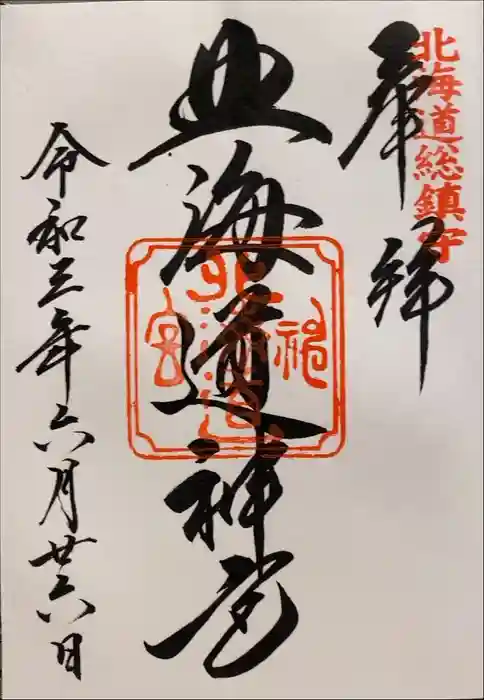 北海道総鎮守
奉拝
北海道神宮
令和三年六月廿六日
北海道神宮